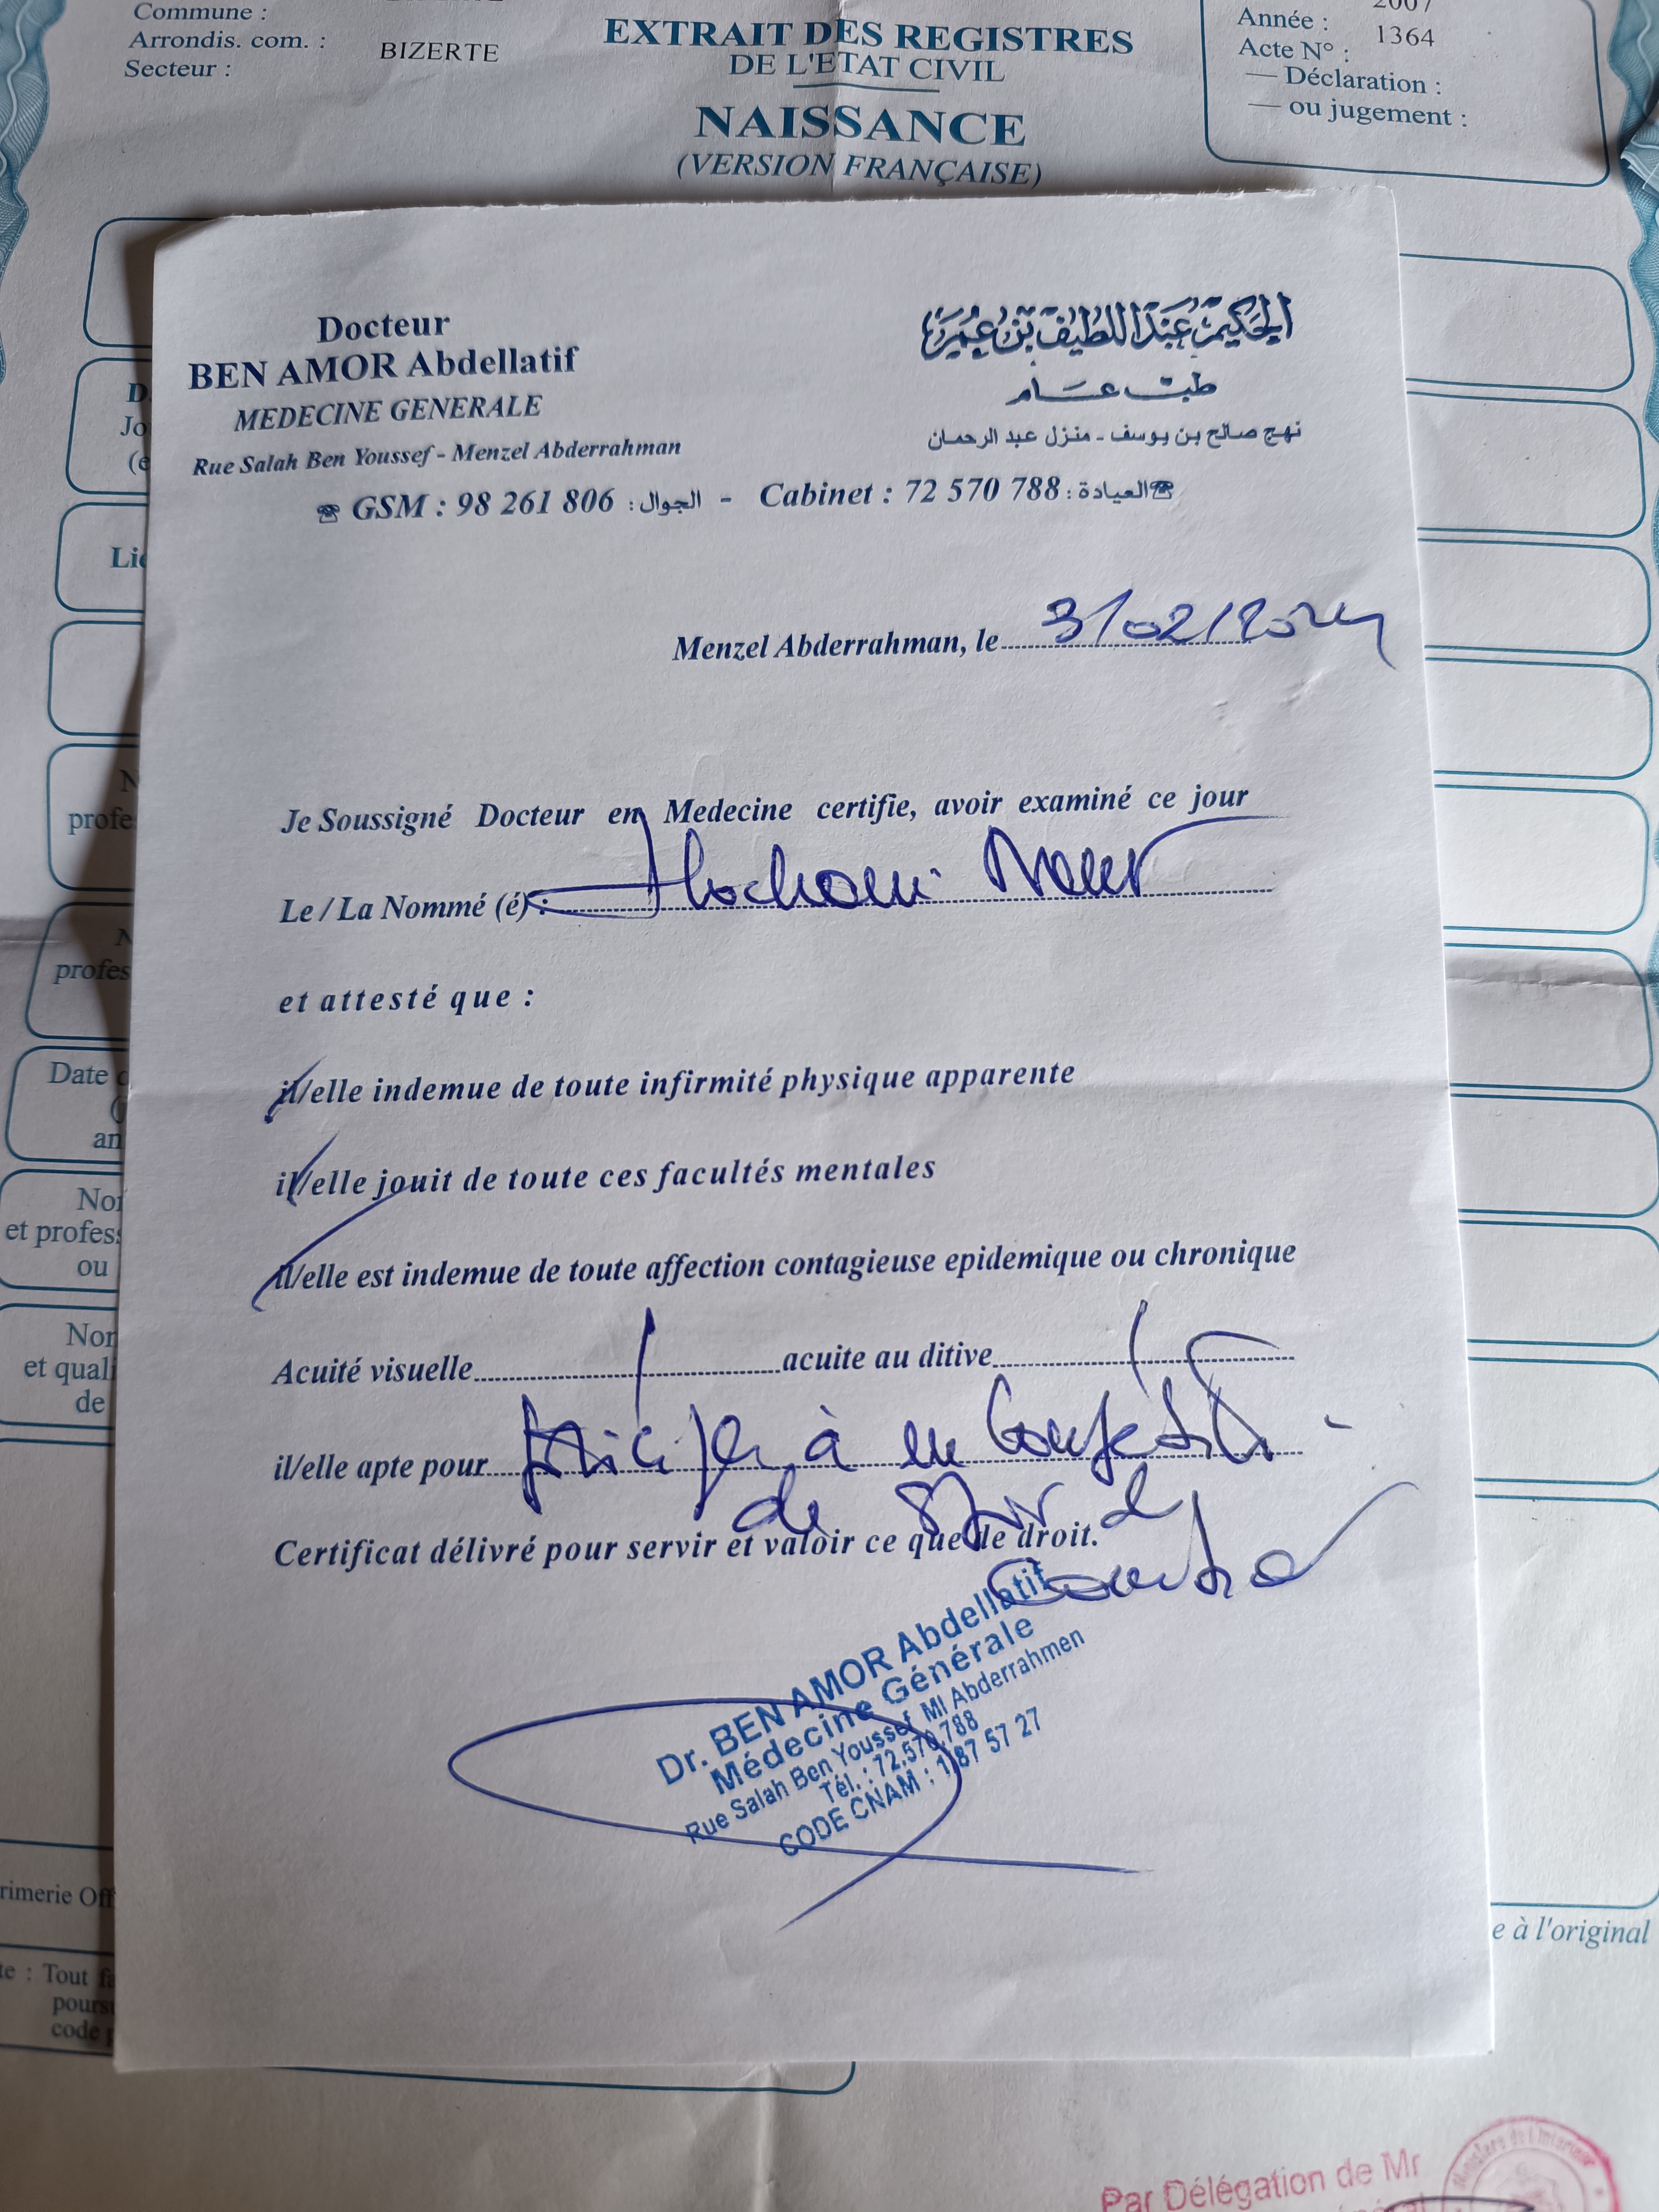 Commune :
Arrondis. com. :
BIZERTE
Secteur :
EXTRAIT DES REGISTRES
DE L'ETAT CIVIL
NAISSANCE
(VERSION FRANÇAISE)
2007
Année :
1364
Acte N° :
— Déclaration :
— ou jugement :
Docteur
BEN AMOR Abdellatif
MEDECINE GENERALE
Rue Salah Ben Youssef - Menzel Abderrahman
الحكيم عبد اللطيف بن عمر
طب عام
نهج صالح بن يوسف - منزل عبد الرحمان
GSM : 98 261 806 الجوال : - Cabinet : 72 570 788 العيادة :
Menzel Abderrahman, le 3/02/2024
Je Soussigné Docteur en Medecine certifie, avoir examiné ce jour
Le / La Nommé (é) :
et attesté que :
il/elle indemue de toute infirmité physique apparente
il/elle jouit de toute ces facultés mentales
il/elle est indemue de toute affection contagieuse epidemique ou chronique
Acuité visuelle acuite au ditive
il/elle apte pour à
de
Certificat délivré pour servir et valoir ce que de droit.
Dr. BEN AMOR Abdellatif
Médecine Générale
Rue Salah Ben Youssef Ml Abderrahmen
Tél. : 72.570.788
CODE CNAM : 1/87 57 27
Lie
profe
profes
Date
an
et profess
ou
et quali
de
rimerie Off
e à l'original
te : Tout
pours
code p
Par Délégation de Mr